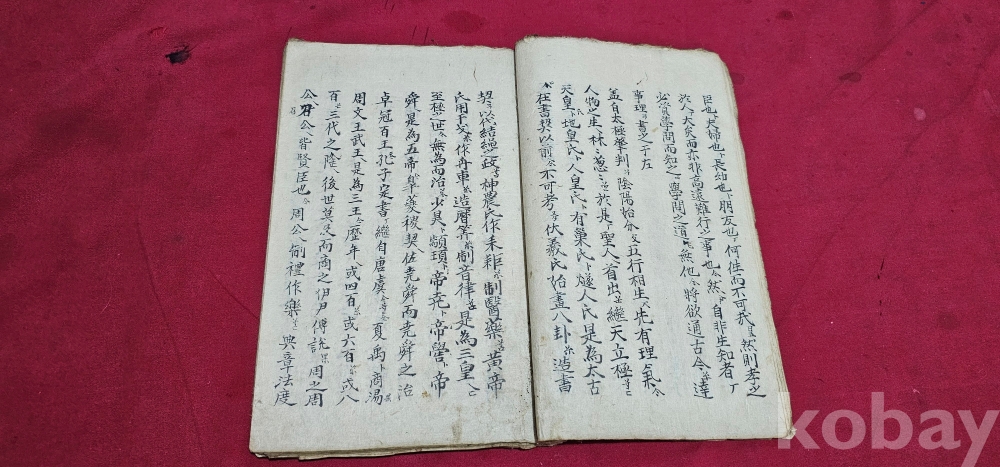 臣也夫婦也長幼也朋友也何往而不可哉然則孝之
於人大矣而亦非高遠難行之事也然自非生知者
必資學問而知之學問之道無他將欲通古今達
事理書之于左
盖自太極肇判陰陽始分五行相生先有理氣
人物之生林葱於是聖人首出繼天立極
天皇氏地皇氏人皇氏有巢氏燧人氏是為太古
在書契以前不可考伏羲氏始畫八卦造書
契以結繩之政神農氏作耒耜制醫藥黃帝
氏用干戈作舟車造曆筭制音律是為三皇
至德之世無為而治少昊顓頊帝堯帝嚳帝
舜是為五帝夔稷契佐堯舜而堯舜之治
卓冠百王孔子定書繼自唐虞夏禹商湯
周文王武王是為三王歷年或四百或六百或八
百三代之隆後世莫及而商之伊尹傅說周之周
公召公皆賢臣也周公制禮作樂典章法度
kobay